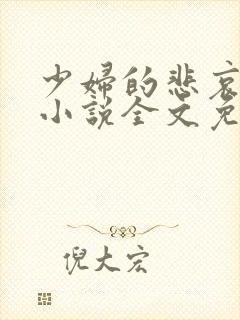 少婦的悲哀
小說全文免
倪大宏